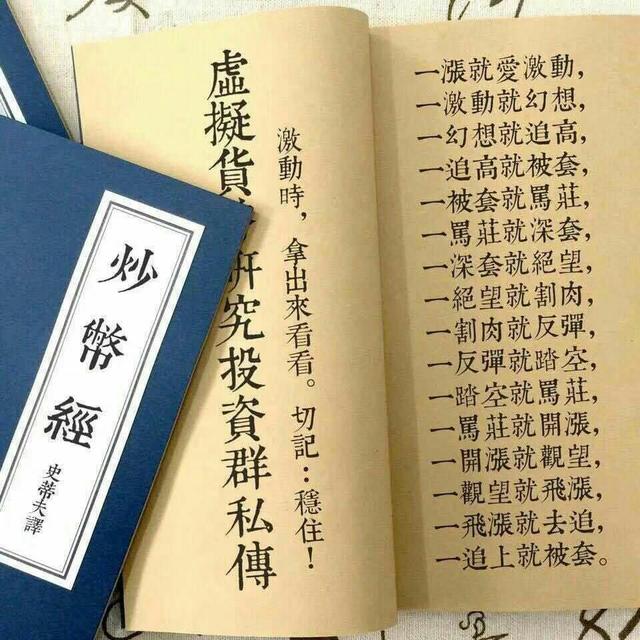 炒幣經
史蒂夫譯
虛擬貨研究投資群私傳
激動時，拿出來看看。切記：穩住！
一漲就愛激動，
一激動就幻想，
一幻想就追高，
一追高就被套，
一被套就罵莊，
一罵莊就深套，
一深套就絕望，
一絕望就割肉，
一割肉就反彈，
一反彈就踏空，
一踏空就罵莊，
一罵莊就開漲，
一開漲就觀望，
一觀望就飛漲，
一飛漲就去追，
一追上就被套。